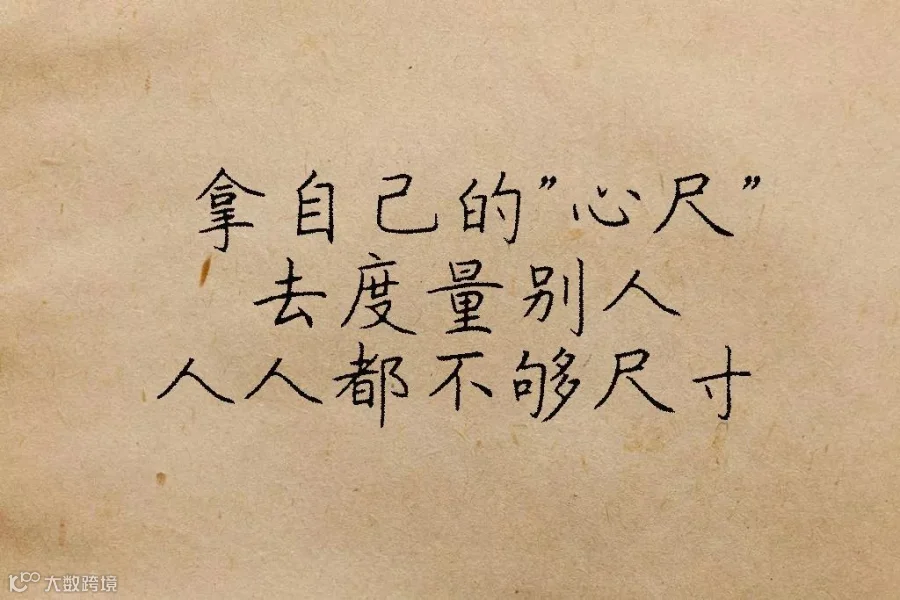 拿自己的”心尺”
去度量别人
人人都不够尺寸
大数跨境